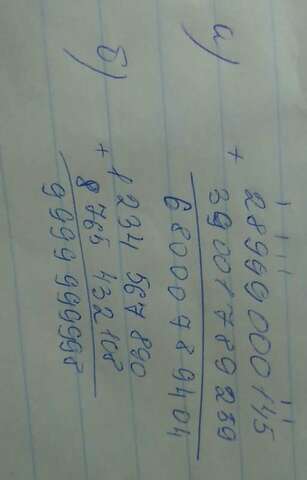 а)
1 1 1 1 1
28999000145
+ 39001789259
68000789404
б)
1 234 567 890
+ 8 765 432 108
9999 999998